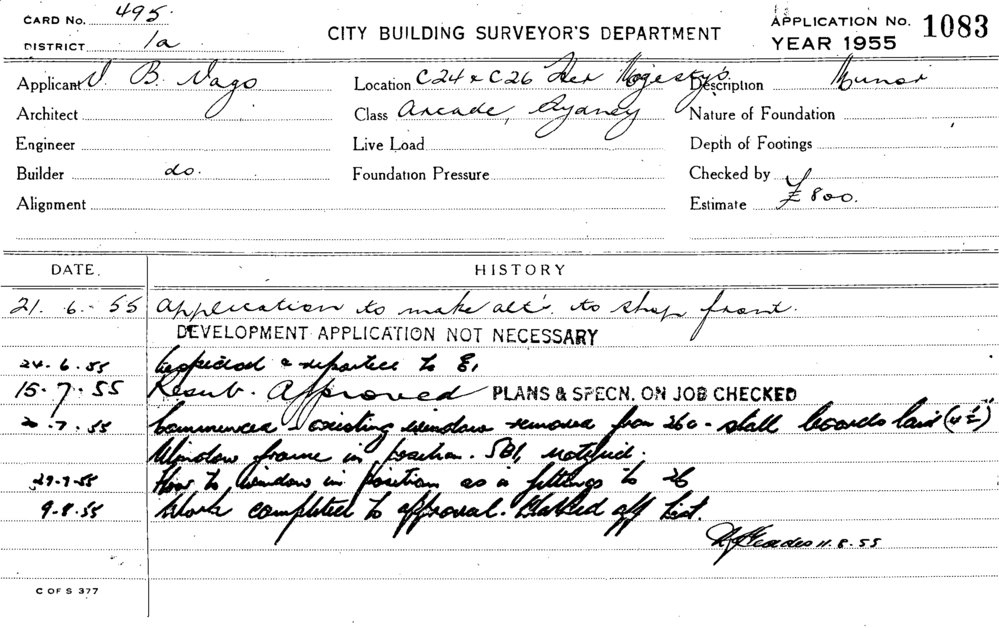 CARD NO. 495.
DISTRICT 1a
CITY BUILDING SURVEYOR'S DEPARTMENT
APPLICATION No. 1083
YEAR 1955
Applicant V. B. Vago
Location C24 & C26 Her Majesty's
Description Minor
Architect
Class Arcade, Sydney
Nature of Foundation
Engineer
Live Load
Depth of Footings
Builder do.
Foundation Pressure
Checked by
Alignment
Estimate £800.
DATE.
HISTORY
21. 6. 55 Application to make alt's. to shop front.
DEVELOPMENT APPLICATION NOT NECESSARY
24. 6. 55 Inspected & reported to E,
15. 7. 55 Result. Approved PLANS & SPECN. ON JOB CHECKED
20. 7. 55 Commenced - existing window removed from 26a - stall boards laid (4½")
Window frame in position. notified.
29. 7. 55 to window in position as is fittings to 26
9. 8. 55 Work completed to approval. Marked off list.
11. 8. 55
C OF S 377